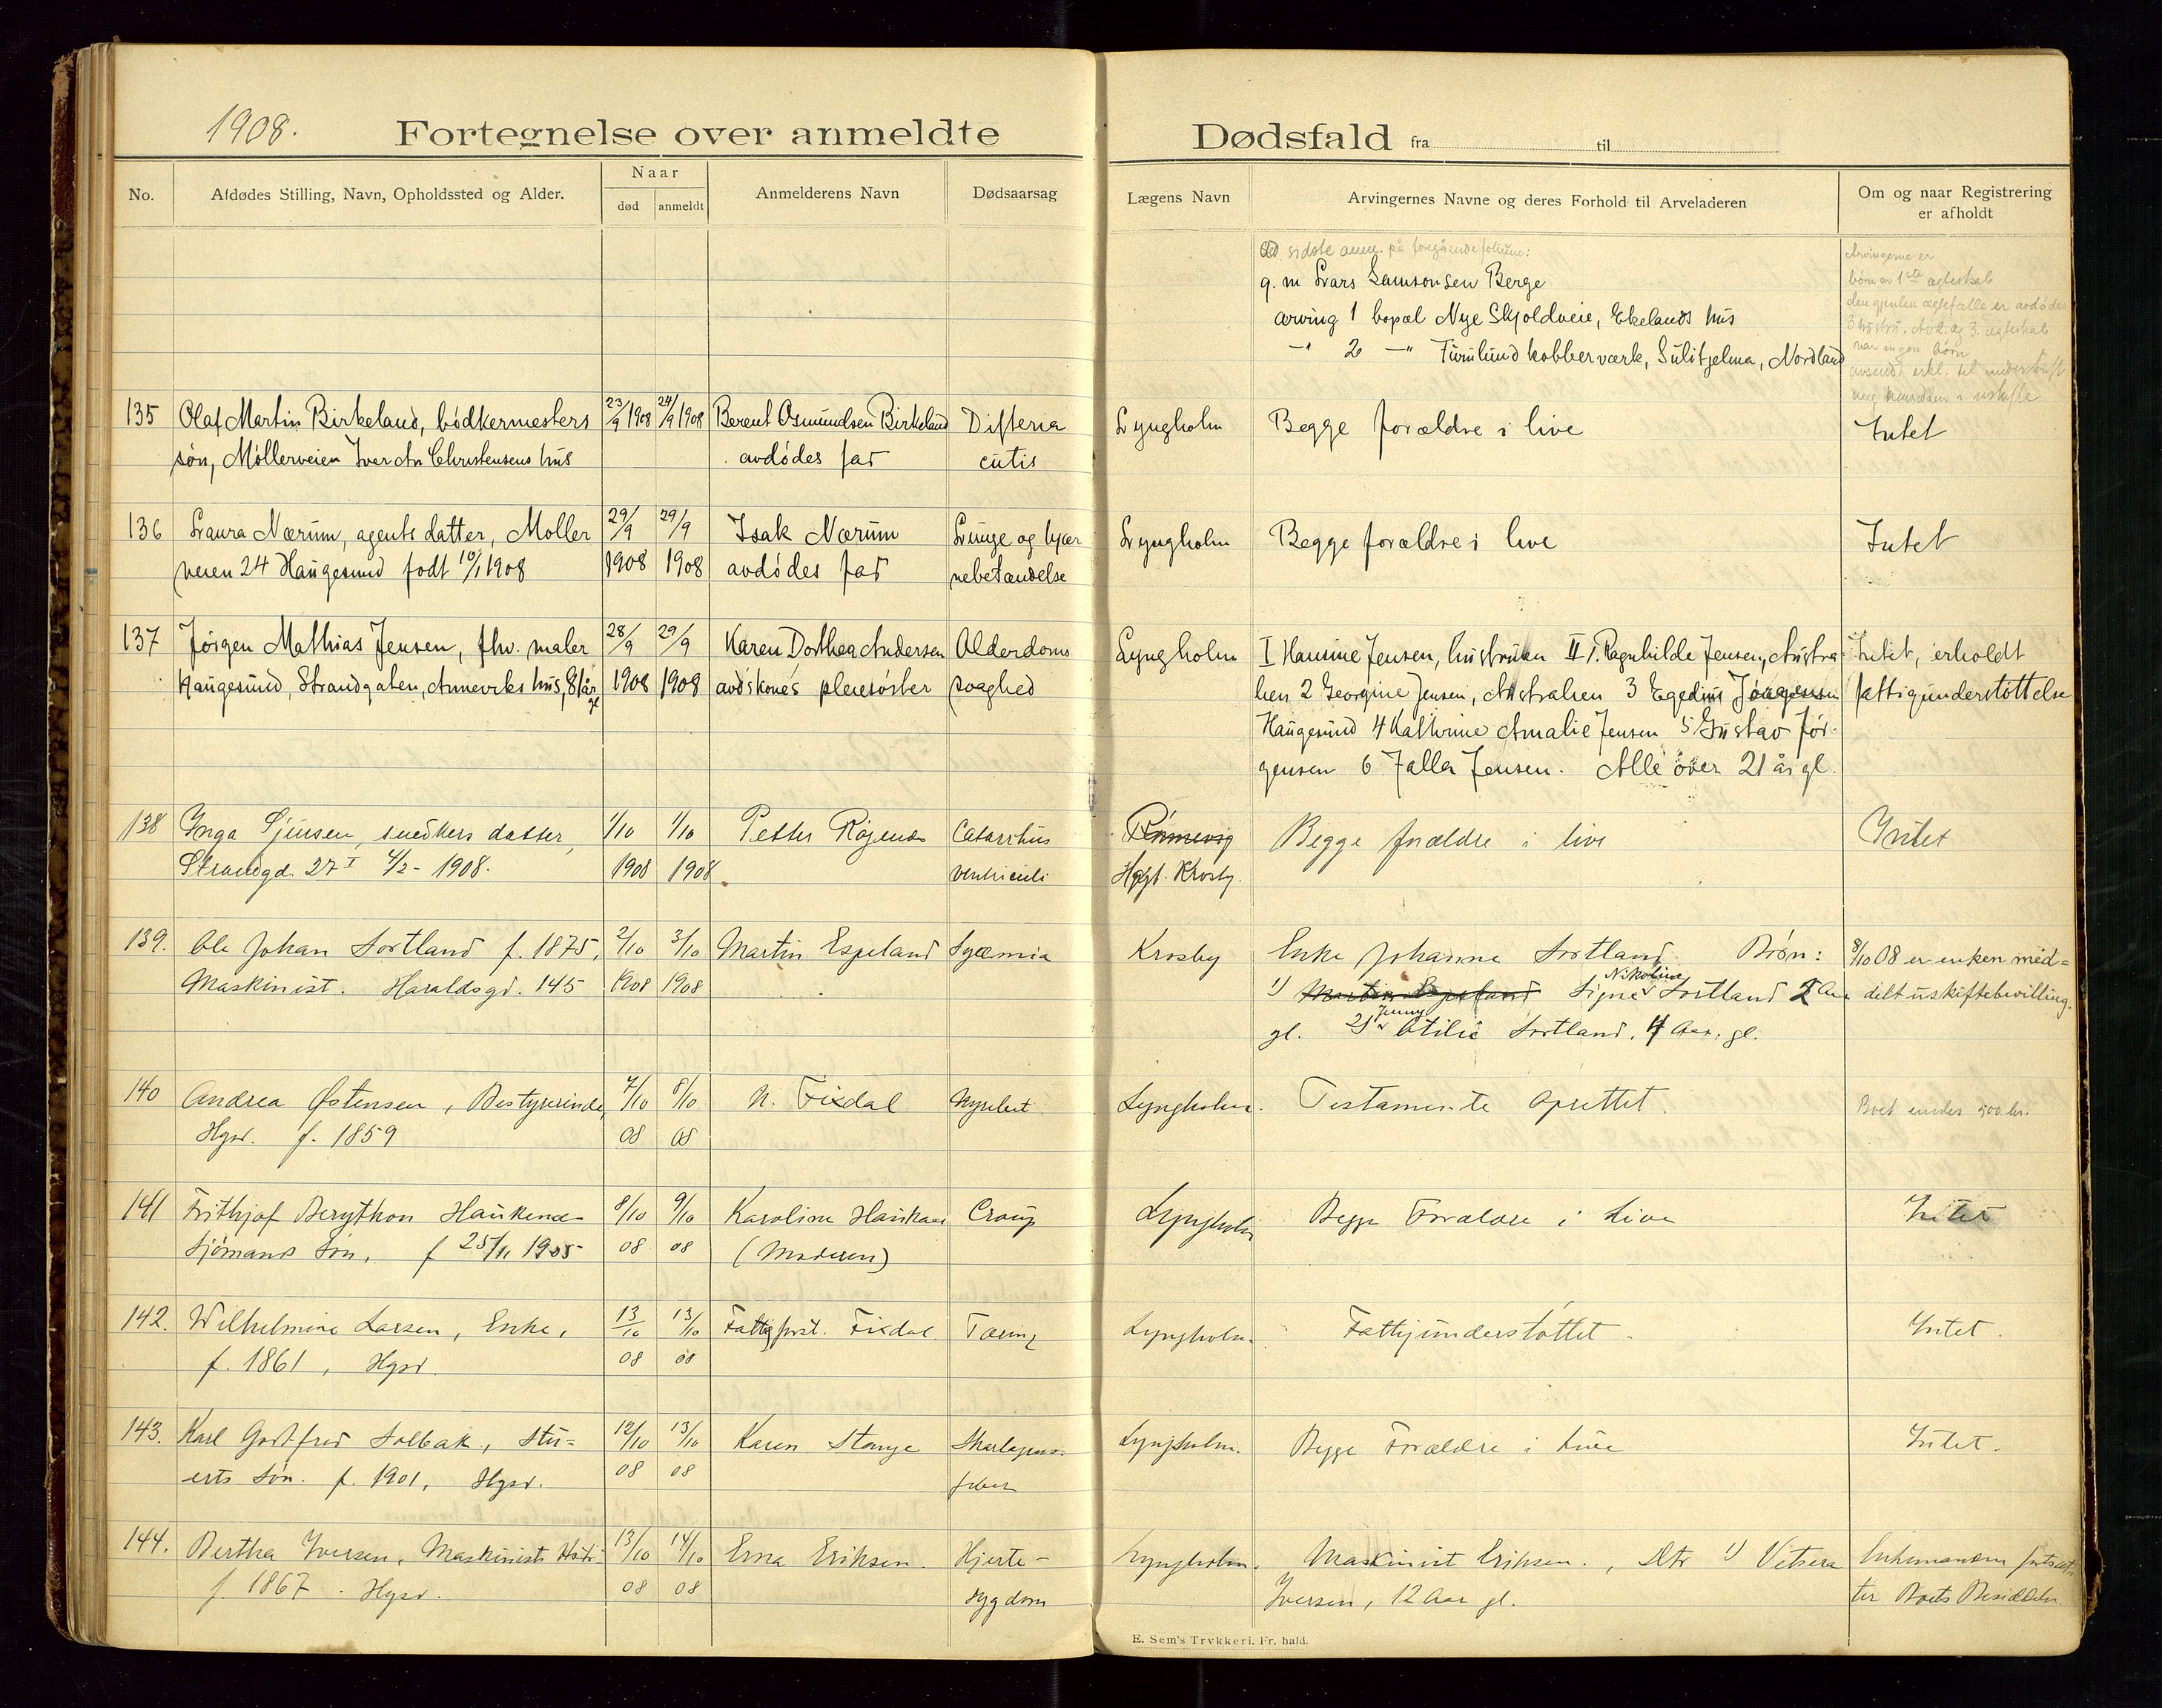 1908.
Fortegnelse over anmeldte Dødsfald fra til
No.
Afdødes Stilling, Navn, Opholdssted og Alder.
Naar
død
anmeldt
Anmelderens Navn
Dødsaarsag
Lægens Navn
Arvingernes Navne og deres Forhold til Arveladeren
Om og naar Registrering
er afholdt
sidste anm. på foregående folium:
g. m Lars Samsonsen Berge
arving 1 bopæl Nye Skjoldveie, Ekelands hus
-" 2 -" Furulund kobberværk, Sulitjelma, Nordland
Arvingerne er
børn av 1ste ægteskab
den gjenlev. ægtefælle er avdødes
3 hustru. Av 2. og 3. ægteskab
var ingen børn
135 Olaf Martin Birkeland, bødkermesters 23/9 1908 24/9 1908 Berent Osmundsen Birkeland Difteria Lyngholm Begge forældre i live Intet
søn, Møllerveien Iver An Christensens hus avdødes far cutis
136 Laura Nærum, agents datter, Møller 29/9 29/9 Isak Nærum Lunge og hjær Lyngholm Begge forældre i live Intet
veien 24 Haugesund født 10/1 1908 1908 1908 avdødes far nebetændelse
137 Jørgen Mathias Jensen, fhv. maler 28/9 29/9 Karen Dorthea Andersen Alderdoms Lyngholm I Hansine Jensen, hustruen II 1. Ragnhilde Jensen, Austra Intet, erholdt
Haugesund, Strandgaten, Anneviks hus, 81 år gl 1908 1908 avdskones pleiesøster svaghed lien 2 Georgine Jensen, Australien 3 Egedius Jørgensen fattigunderstøttelse
Haugesund 4 Kathrine Amalie Jensen 5 Gustav Jør-
gensen 6 Jalla Jensen. Alle over 21 år gl.
138 Inga Sjursen, snedkers datter, 1/10 1/10 Petter Røjenes Catarrhus Rømmevig Begge forældre i live Intet
Strandgd. 27 I 4/2 - 1908. 1908 1908 ventriculi Hgst. Krosby.
139. Ole Johan Sortland f. 1875, 2/10 3/10 Martin Espeland Krosby Enke Johanne Sortland Børn: 8/10 08 er enken med=
Maskinist. Haraldsgd. 145 1908 1908 1) Martin Espeland Signe Nikoline Sortland 2 Aar delt uskiftebevilling.
gl. 2) Jenny Otilie Sortland, 4 Aar. gl.
140 Andrea Østensen, Bestyrerinde, 7/10 8/10 N. Fixdal Nyrebet. Lyngholm. Testamente oprettet. Boet under 500 kr.
Hgsd. f. 1859 08 08
141 Frithjof Berython Haukenæs 8/10 9/10 Karoline Haukaas Croup Lyngholm Begge Forældre i Live Intet
Sjømands Søn, f 25/11 1905 08 08 (Moderen)
142. Wilhelmine Larsen, Enke, 13/10 13/10 Fattigforst. Fixdal Tæring Lyngholm. Fattigunderstøttet - Intet.
f. 1861, Hgsd. 08 08
143. Karl Gotfred Solbak, Stu= 12/10 13/10 Karen Stange Skarlagens- Lyngholm. Begge Forældre i Live Intet.
erts Søn. f. 1901, Hgsd. 08 08 feber
144. Bertha Iversen, Maskinists Hstr. 13/10 14/10 Erna Eriksen. Hjerte- Lyngholm. Maskinist Eriksen., Dtr 1) Enkemanden fortsæt
f. 1867. Hgsd. 08 08 sygdom Iversen, 12 Aar gl. ter Boets Besiddelse.
E. Sem's Trykkeri, Fr.hald.